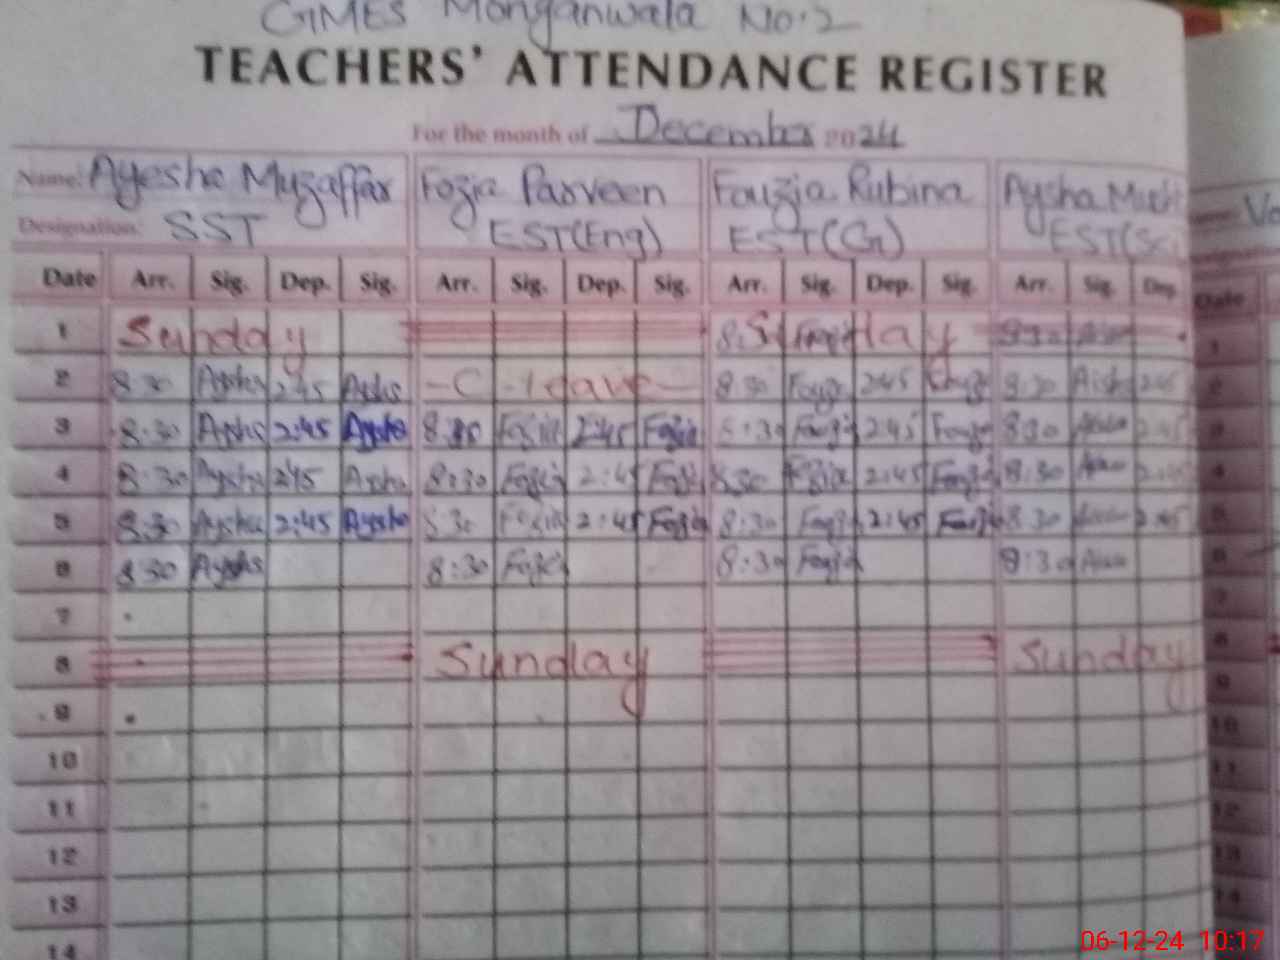 GIMES Monganwala No.2
TEACHERS' ATTENDANCE REGISTER
For the month of December 2024
Name: Ayesha Muzaffar Fozia Parveen Fouzia Rubina Aysha
Designation: SST EST(Eng) EST(G) EST(Sci
Date Arr. Sig. Dep. Sig. Arr. Sig. Dep. Sig. Arr. Sig. Dep. Sig. Arr. Sig. Dep. Date
1 Sunday 1
2 8:30 Aysha 2:45 -C-leave- 8:30 2:45 8:30 2:45 2
3 8:30 Aysha 2:45 Aysha Fozia 2:45 Fozia 2:45 8:30 2:45 3
4 8:30 Aysha 2:45 Aysha 8:30 Fozia 2:45 Fozia 8:30 2:45 8:30 4
5 8:30 Aysha 2:45 Aysha 8:30 Fozia 2:45 Fozia 8:30 2:45 8:30 2:45 5
6 8:30 Aysha 8:30 Fozia 8:30 8:30 6
7 7
8 Sunday Sunday 8
9 9
10 10
11 11
12 12
13 13
14 14
06-12-24 10:17